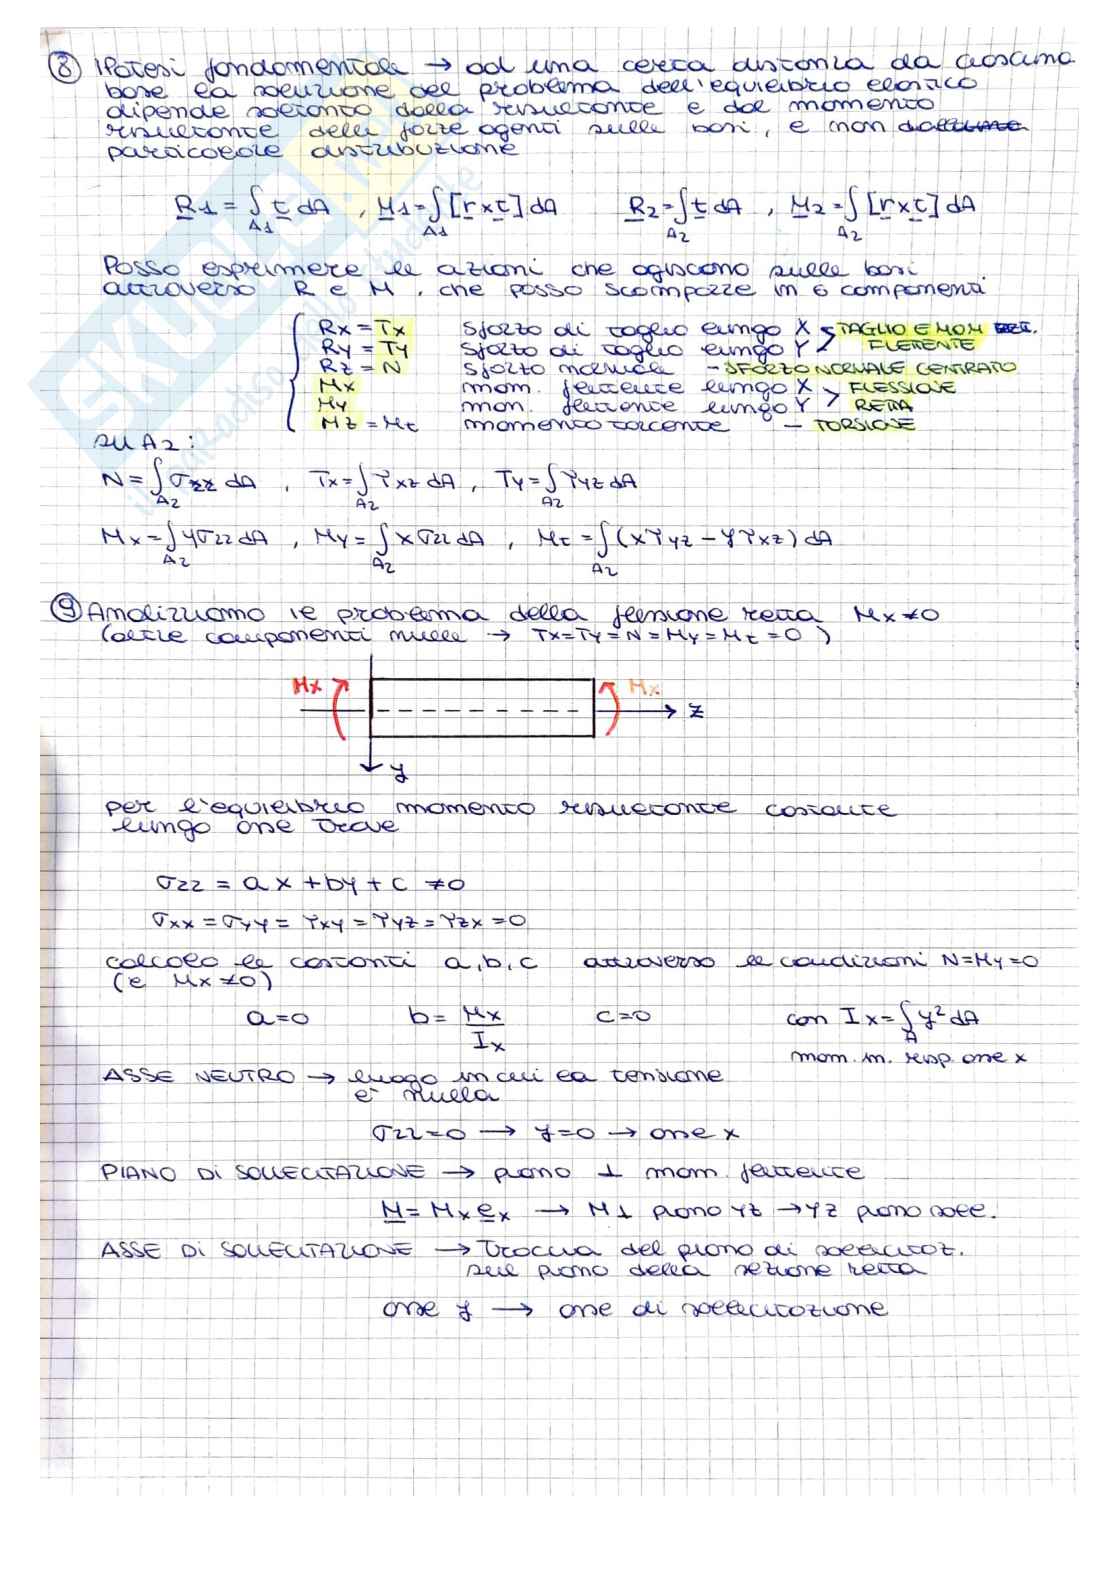 ⑧ Ipotesi fondamentale → ad una certa distanza da ciascuna
base la soluzione del problema dell'equilibrio elastico
dipende soltanto dalla risultante e dal momento
risultante delle forze agenti sulle basi, e non dalla
particolare distribuzione
R1 = ∫A1 t dA , M1 = ∫A1 [r x t] dA R2 = ∫A2 t dA , M2 = ∫A2 [r x t] dA
Posso esprimere le azioni che agiscono sulle basi
attraverso R e M, che posso scomporre in 6 componenti
Rx = Tx sforzo di taglio lungo X > TAGLIO E MOM.
Ry = Ty sforzo di taglio lungo Y FLETTENTE
Rz = N sforzo normale - SFORZO NORMALE CENTRATO
Mx mom. flettente lungo X > FLESSIONE
My mom. flettente lungo Y RETTA
Mz = Mt momento torcente - TORSIONE
su A2:
N = ∫A2 σzz dA , Tx = ∫A2 τxz dA , Ty = ∫A2 τyz dA
Mx = ∫A2 yσzz dA , My = ∫A2 xσzz dA , Mt = ∫A2 (xτyz - yτxz) dA
⑨ Analizziamo il problema della flessione retta Mx ≠ 0
(altre componenti nulle → Tx = Ty = N = My = Mt = 0)
Mx Mx
z
y
per l'equilibrio momento risultante costante
lungo asse trave
σzz = ax + by + c ≠ 0
σxx = σyy = τxy = τyz = τzx = 0
calcolo le costanti a, b, c attraverso le condizioni N = My = 0
(e Mx ≠ 0)
a = 0 b = Mx/Ix c = 0 con Ix = ∫A y² dA
mom. in. risp. asse x
ASSE NEUTRO → luogo in cui la tensione
è nulla
σzz = 0 → y = 0 → asse x
PIANO DI SOLLECITAZIONE → piano ⊥ mom. flettente
M = Mx ex → M ⊥ piano yz → yz piano soll.
ASSE DI SOLLECITAZIONE → traccia del piano di sollecitaz.
sul piano della sezione retta
asse y → asse di sollecitazione